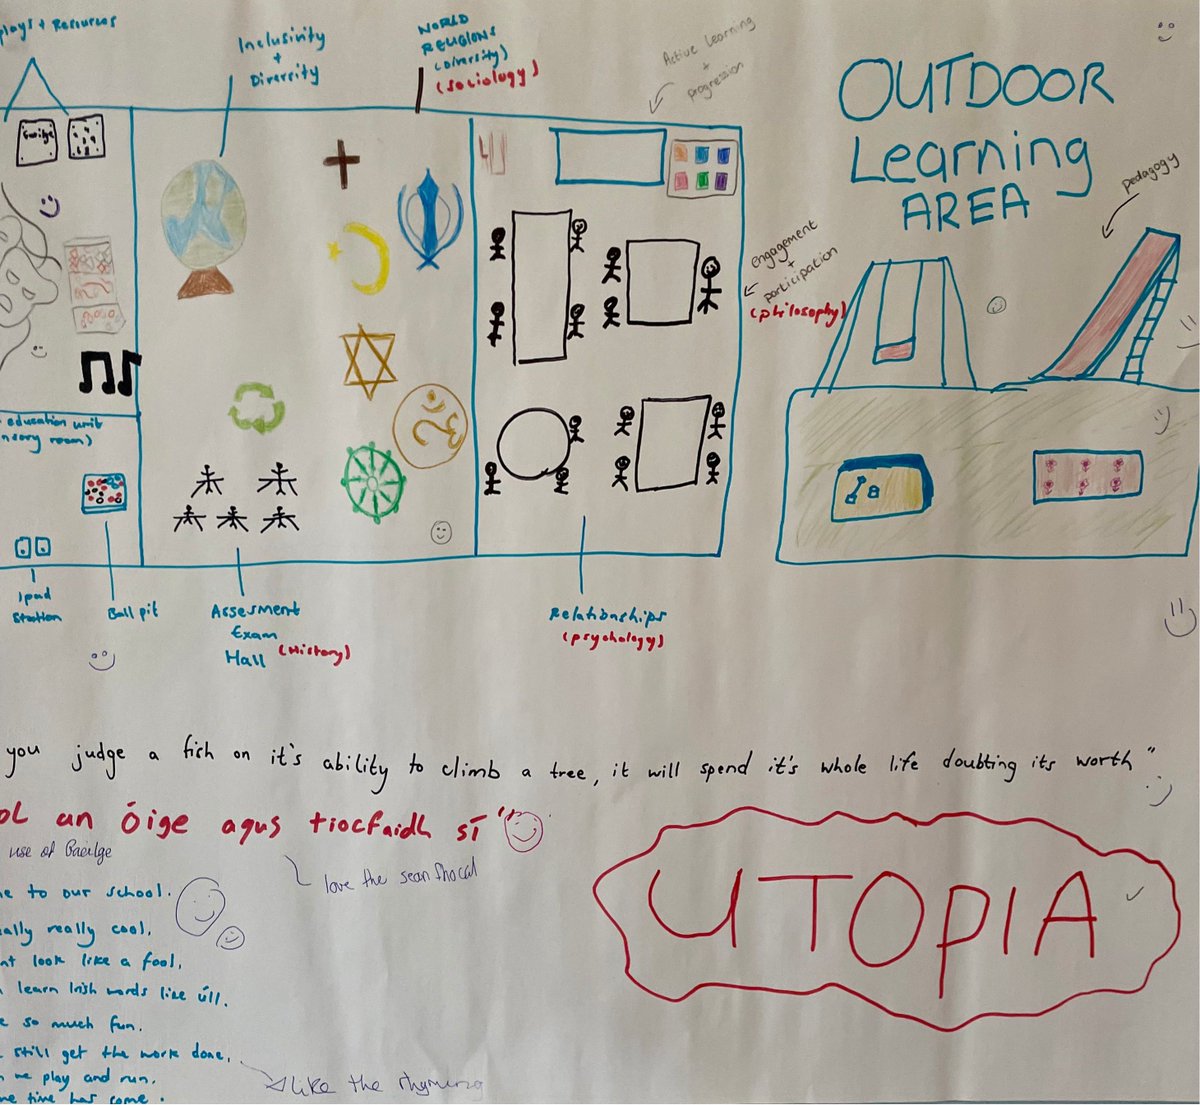 plays + Resources
Inclusivity
+
Diversity
WORLD
RELIGIONS
(diversity)
(sociology)
Active Learning
+
progression
OUTDOOR
Learning
AREA
pedagogy
Gaeilge
Engagement
+
participation
(philosophy)
education unit
nsory room)
Ipad
station
Ball pit
Assesment
Exam
Hall
(History)
Relationships
(psychology)
you judge a fish on it's ability to climb a tree, it will spend it's whole life doubting its worth"
an óige agus tiocfaidh sí"
use of Gaeilge
love the sean fhocal
UTOPIA
to our school.
really cool.
look like a fool,
learn Irish words like úll.
so much fun.
still get the work done,
we play and run.
time has come.
like the rhyming